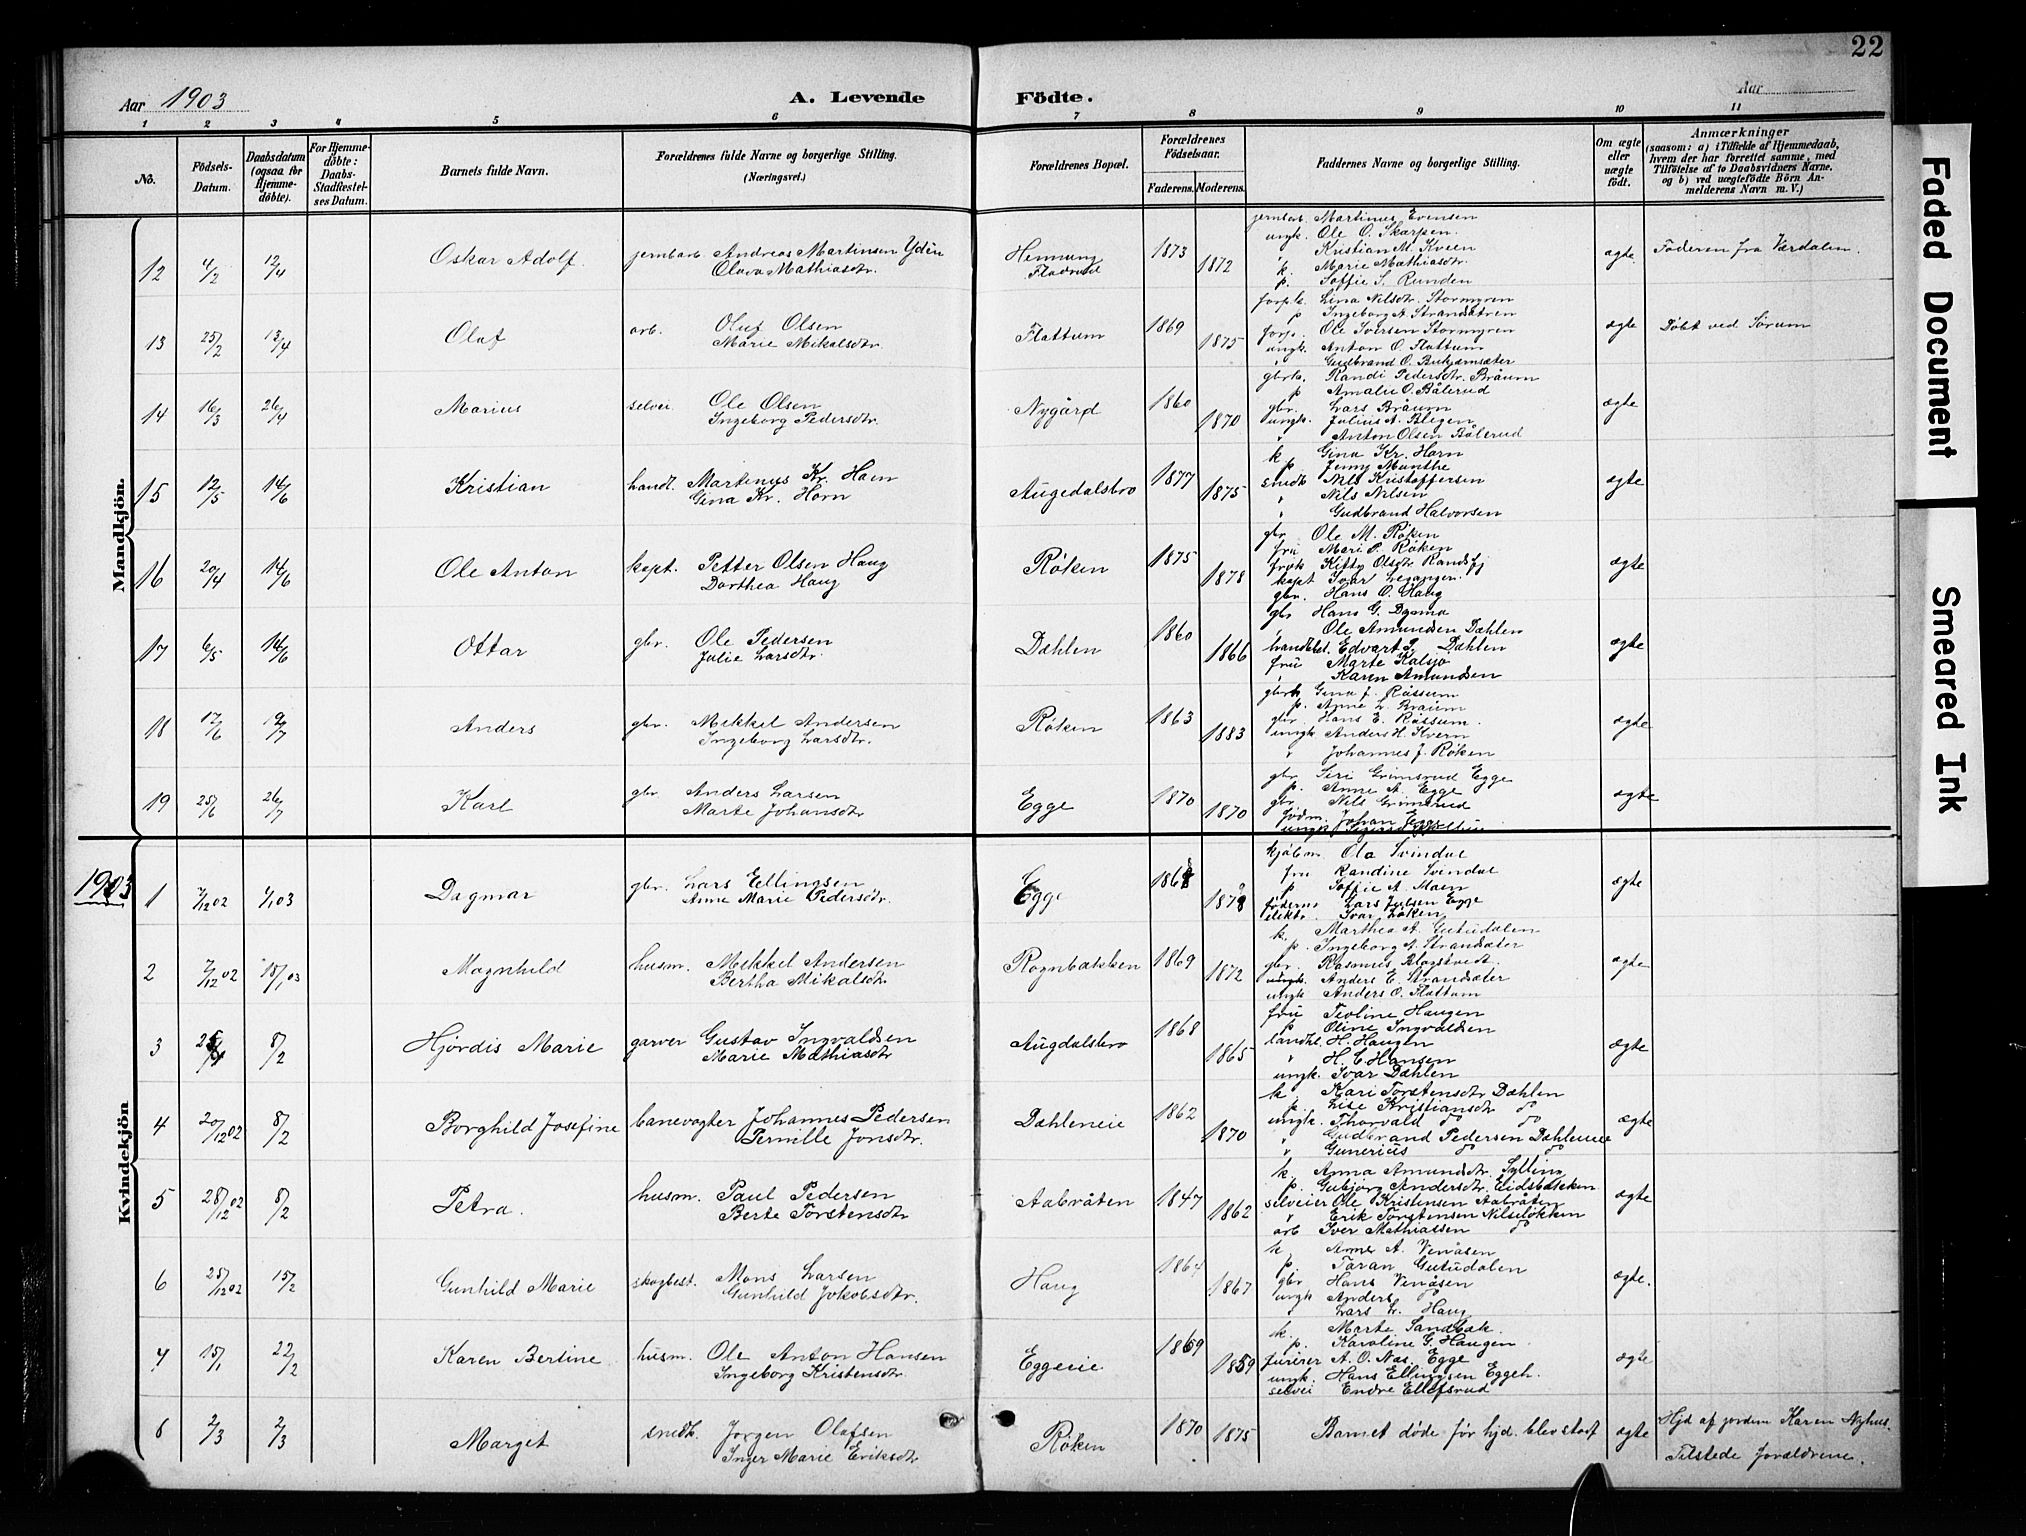 22
Aar 1903
A. Levende Födte.
Aar
1 2 3 4 5 6 7 8 9 10 11
No.
Födsels-Datum.
Daabsdatum (ogsaa for Hjemme-döbte).
For Hjemme-döbte: Daabs-Stadfæstel-ses Datum.
Barnets fulde Navn.
Forældrenes fulde Navne og borgerlige Stilling. (Næringsvei.)
Forældrenes Bopæl.
Forældrenes Födselsaar.
Faderens. Moderens.
Faddernes Navne og borgerlige Stilling.
Om ægte eller uægte födt.
Anmærkninger
(saasom: a) i Tilfælde af Hjemmedaab, hvem der har forrettet samme, med Tilföielse af to Daabsvidners Navne. og b) ved uægtefödte Börn An-melderens Navn m. V.)
Mandkjön.
12 4/2 12/4 Oskar Adolf jernbarb. Andreas Martinsen Ydse
Olava Mathiasdtr.
Fladrud 1873 1872
jernbarb. Martinus Evensen
ungk. Ole O. Skarpen
Kristian M. Kveen
k. Marie Mathiasdtr.
p. Soffie S. Runden
ægte. Faderen fra Værdalen.
13 25/2 13/4 Olaf arb. Oluf Olsen
Marie Mikalsdtr.
Flattum 1869 1875
forp.k. Lina Nilsdtr. Stormyren
p Ingeborg A. Strandsætren
forp. Ole Iversen Stormyren
ungk. Anton O. Flattum
ægte Döbt ved Sørum
14 16/3 26/4 Marius selvei. Ole Olsen
Ingeborg Pedersdtr.
Nygård 1860 1870
gbrk. Randi Pedersdtr. Bråum
p Amalie O. Bålerud
gbr. Lars Bråum
ungk. Julius A. Blegen
" Anton Olsen Bålerud
ægte
15 12/5 14/6 Kristian handl. Martinus Kr. Haen
Gina Kr. Horn
Augedalsbro 1877 1875
k Gina Kr. Horn
p Jenny Munthe
smedk Nils Kristoffersen
" Nils Nilsen
" Gudbrand Halvorsen
ægte
16 20/4 14/6 Ole Anton kapt. Petter Olsen Haug
Dorthea Haug
Røken 1875 1878
gbr Ole M. Røken
fru Mari P. Røken
frøk Kitty Olsdtr Randsfj
kapt Ivar Legangen.
gbr. Hans O. Haug
ægte
17 6/5 14/6 Ottar gbr. Ole Pedersen
Julie Larsdtr.
Dæhlen 1860 1866
gbr Hans G. Dæma
" Ole Amundsen Dæhlen
handelsb. Edvart P. Dæhlen
fru Marte Kalsjø
" Karen Amundsen
ægte
18 17/6 19/7 Anders gbr. Mikkel Andersen
Ingeborg Larsdtr.
Røken 1863 1883
gbrk Gina J. Råssum
p. Anne L. Bråum
gbr Hans E. Råssum
ungk Anders H. Kvern
" Johannes J. Røken
ægte
19 25/6 26/7 Karl gbr Anders Larsen
Marte Johansdtr
Egge 1870 1870
gbr Siri Grimsrud Egge
p. Anne A. Egge
gbr Nils Grimsrud
födm. Johan Egge
ægte
1903
Kvindekjön
1 7/12 02 1/1 03 Dagmar gbr. Lars Ellingsen
Anne Marie Pedersdtr.
Egge
kjöbm Ola Svindal
fru Randine Svendal
p Soffie A. Moen
föderm Lars Juelsen Egge
Ivar Løken
ægte
2 7/12 02 18/1 03 Magnhild husm. Mikkel Andersen
Bertha Mikalsdtr
Rognbakken 1869 1872
k. Marthea A. Gutudalen
p. Ingeborg A. Strandsæter
gbr. Rasmus Blogstvedt.
ungk. Anders E. Strandsæter
ungk Anders O. Flattum
ægte
3 8/2 Hjørdis Marie garver Gustav Ingvaldsen
Marie Mathiasdtr
Augdalsbro 1868 1865
fru Teoline Haugen
p Oline Ingvaldsen
landhl. H. Haugen
" H. C. Hansen
ungk. Ivar Dæhlen
ægte
4 20/12 02 8/2 Borghild Josefine banevogter Johannes Pedersen
Pernille Jonsdtr.
Dæhleneie 1862 1870
k Kari Torstensdtr Dæhlen
p. Lise Kristiansdtr do
ungk. Thorvald do do
" Gudbrand Pedersen Dæhleneie
" Gunerius do do
ægte
5 28/12 02 8/2 Petra. husm. Paul Pedersen
Berte Torstensdtr
Aabråten 1847 1862
k. Anna Amundsdtr. Sylling
p. Gubjørg Andersdtr. Eidsbakken
selveier Ole Kristensen Aabråten
" Erik Torstensen Nilsløkken
arb Iver Mathiassen do
ægte
6 25/12 02 15/2 Gunhild Marie skogbest. Mons Larsen
Gunhild Jakobsdtr.
Haug 1864 1867
k Anne A. Venåsen
p. Taran Gutudalen
gbr Hans Venåsen
ungk Anders do
" Lars L. Haug
ægte.
7 15/1 22/2 Karen Bertine husm. Ole Anton Hansen
Ingeborg Kristensdtr.
Eggeeie 1869 1859
k. Marte Sandbæk.
p. Karoline G. Haugen
furirer A. O. Næs. Egge
ungk. Hans Ellingsen Eggeh.
selvei Endre Ellefsrud
ægte
8 2/3 2/3 Marget smedk. Jørgen Olafsen
Inger Marie Eriksdtr
Røken 1870 1875
Barnet døde før hjd. blev stadf
ægte
Hjd af jordem Karen Nyhus.
Tilstede forældrene.
Faded Document
Smeared Ink